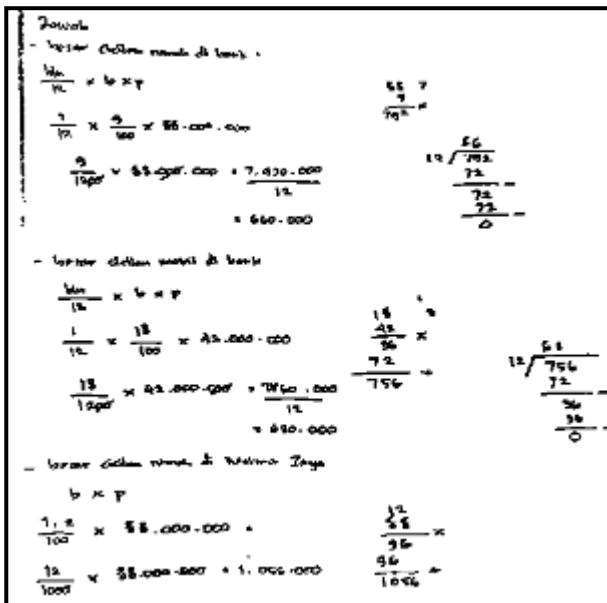 Jawab
- besar cicilan rumah di bank :
bln/12 × b × p
1/12 × 9/100 × 88.000.000
9/1200 × 88.000.000 = 7.920.000/12
= 660.000
88
9 ×
792
66
12 / 792
72 -
72
72 -
0
- besar cicilan mobil di bank
bln/12 × b × p
1/12 × 18/100 × 42.000.000
18/1200 × 42.000.000 = 7560.000/12
= 630.000
18
42 ×
36
72 +
756
63
12 / 756
72 -
36
36 -
0
- besar cicilan rumah di Jaya
b × p
1,2/100 × 88.000.000 =
12/1000 × 88.000.000 = 1.056.000
12
88 ×
96
96 +
1056